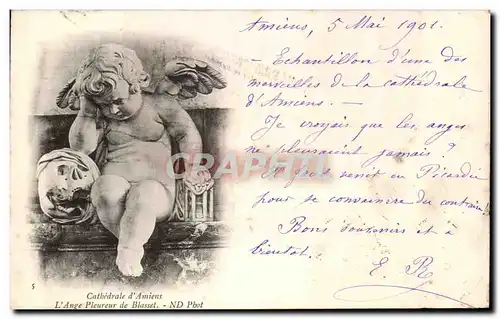 Amiens, 5 Mai 1901.
- Echantillon d'une des
merveilles de la cathédrale
d'Amiens. -
Je croyais que les anges
ne pleuraient jamais ?
Il faut venir en Picardie
pour se convaincre du contraire !
Bons souvenirs et à
bientôt.
E. R
CARTHAPO
5
Cathédrale d'Amiens
L'Ange Pleureur de Blasset. - ND Phot